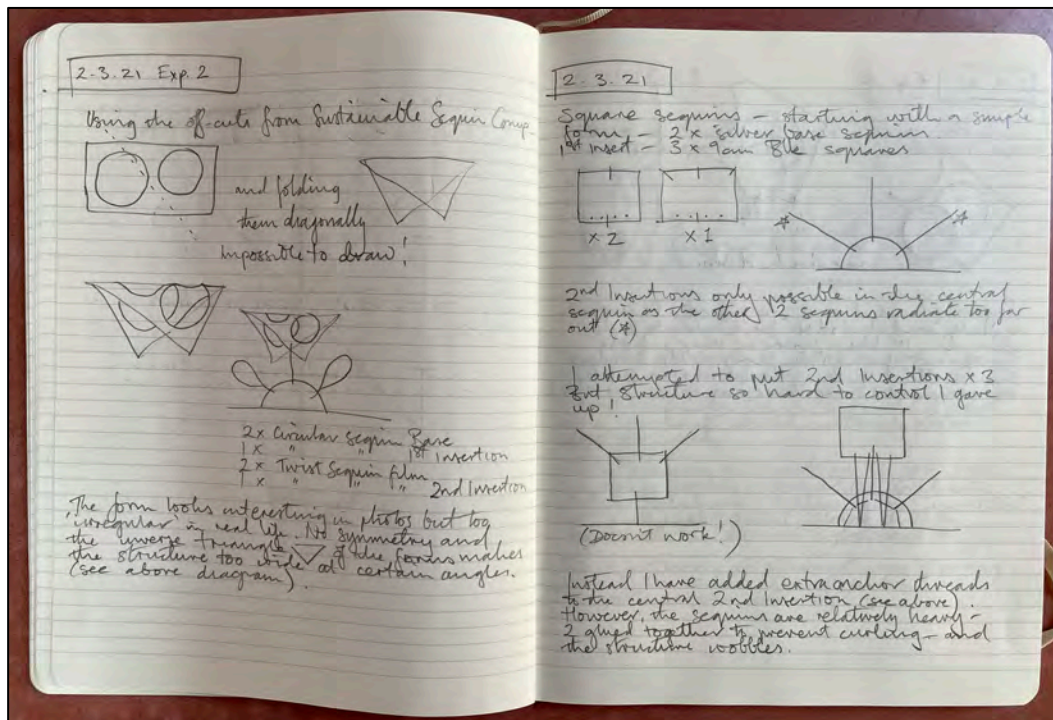 2.3.21 Exp. 2
Using the off-cuts from Sustainable Sequin Comp.
and folding
them diagonally
impossible to draw!
2x Circular Sequin Base
1x " " 1st Insertion
2x Twist Sequin film
1x " " " 2nd Insertion
The form looks interesting in photos but too
irregular in real life. No symmetry and
the inverse triangle of the forms makes
the structure too wide at certain angles.
(see above diagram).
2.3.21
Square sequins – starting with a simple
form – 2 x silver base sequins
1st insert – 3 x 9cm Blue squares
x 2
x 1
2nd Insertions only possible in the central
sequin as the other 2 sequins radiate too far
out (*)
I attempted to put 2nd Insertions x 3
But structure so hard to control I gave
up!
(Doesn't work!)
Instead I have added extra anchor threads
to the central 2nd Insertion (see above).
However, the sequins are relatively heavy –
2 glued together to prevent curling – and
the structure wobbles.